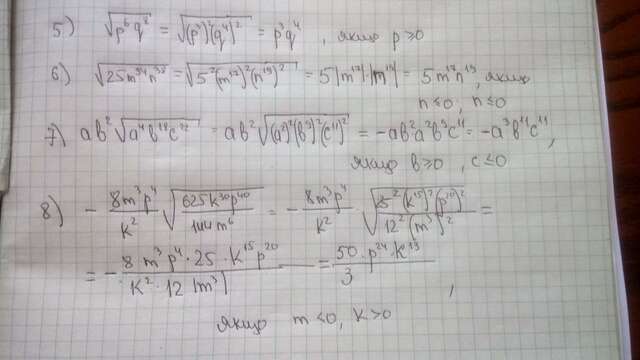 5) √(p⁶q⁸) = √((p³)²(q⁴)²) = p³q⁴, якщо p≥0
6) √(25m³⁴n³⁸) = √(5²(m¹⁷)²(n¹⁹)²) = 5|m¹⁷|·|n¹⁹| = 5m¹⁷n¹⁹, якщо
n≤0, n≤0
7) ab²√(a⁴b¹⁸c²²) = ab²√((a²)²(b⁹)²(c¹¹)²) = -ab²a²b⁹c¹¹ = -a³b¹¹c¹¹,
якщо b≥0, c≤0
8) - 8m³p⁴/k² √(625k³⁰p⁴⁰/144m⁶) = - 8m³p⁴/k² √(25²(k¹⁵)²(p²⁰)²/12²(m³)²) =
= - 8m³p⁴·25·k¹⁵p²⁰/k²·12|m³| = 50·p²⁴·k¹³/3,
якщо m<0, k>0